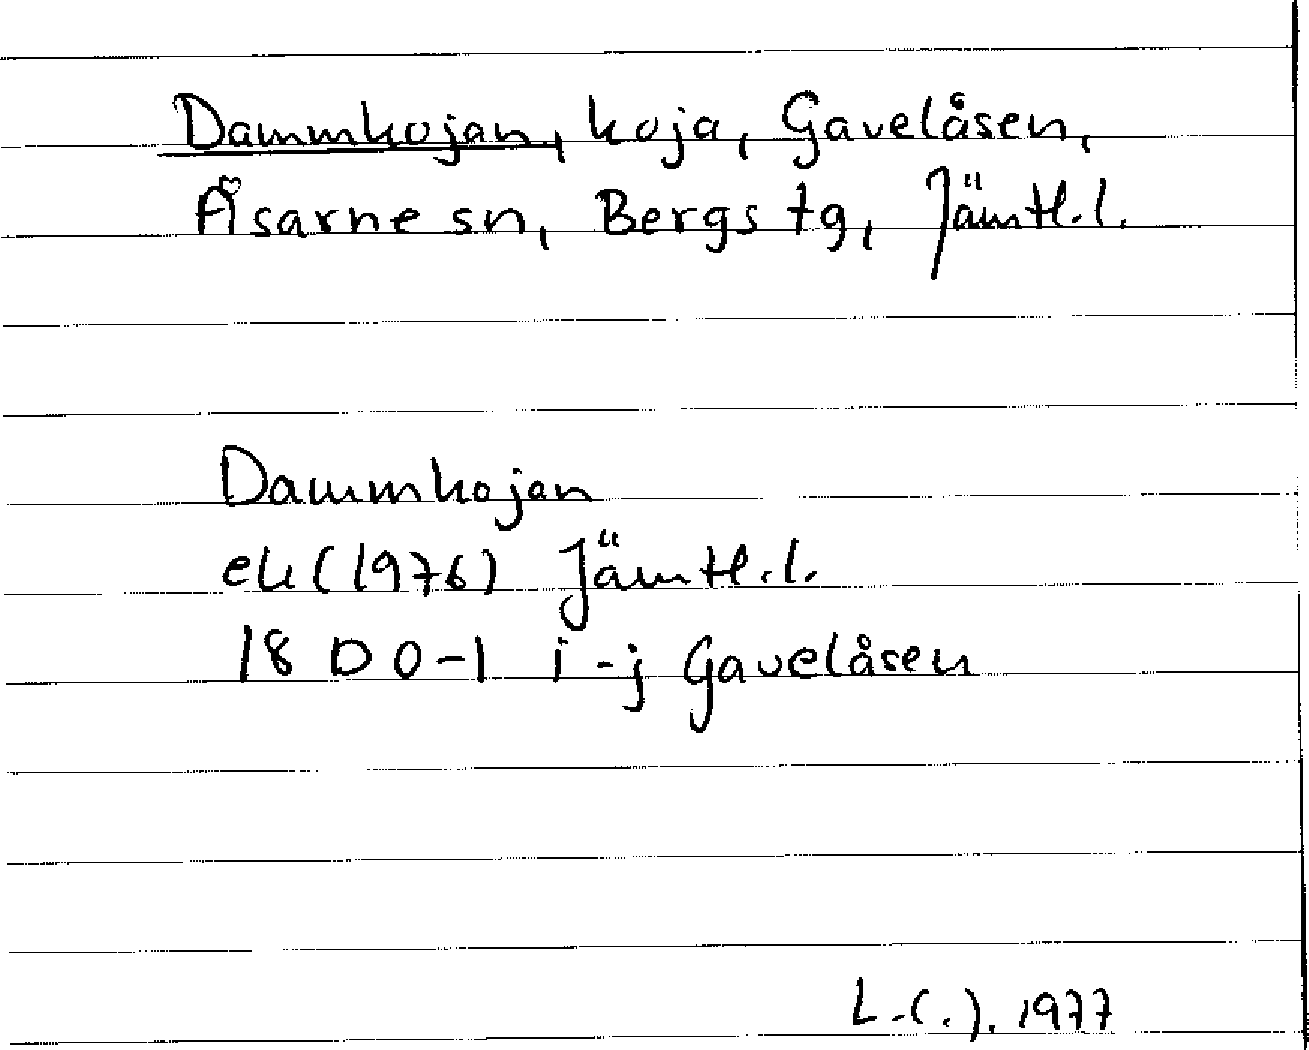 Dammkojan, koja, Gavelåsen,
Åsarne sn, Bergs tg, Jämtl.l.
Dammkojan
ek (1976) Jämtl.l.
18 D 0-1 i-j Gavelåsen
1977